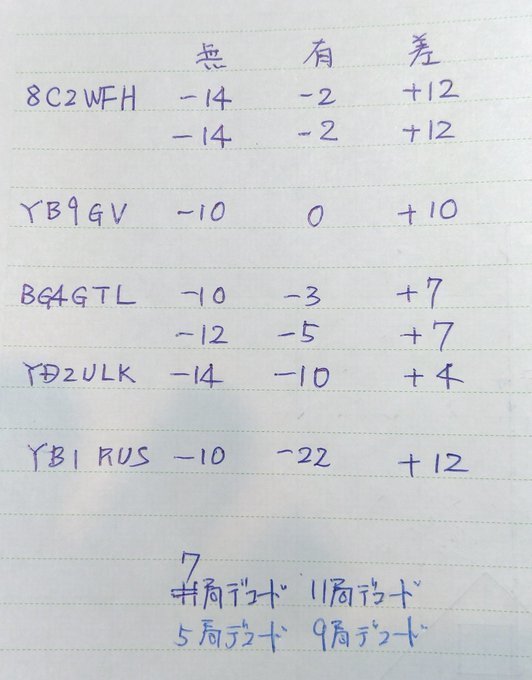 無 有 差
8C2WFH -14 -2 +12
-14 -2 +12
YB9GV -10 0 +10
BG4GTL -10 -3 +7
-12 -5 +7
YD2ULK -14 -10 +4
YB1RUS -10 -22 +12
7
局デコード 11局デコード
5局デコード 9局デコード